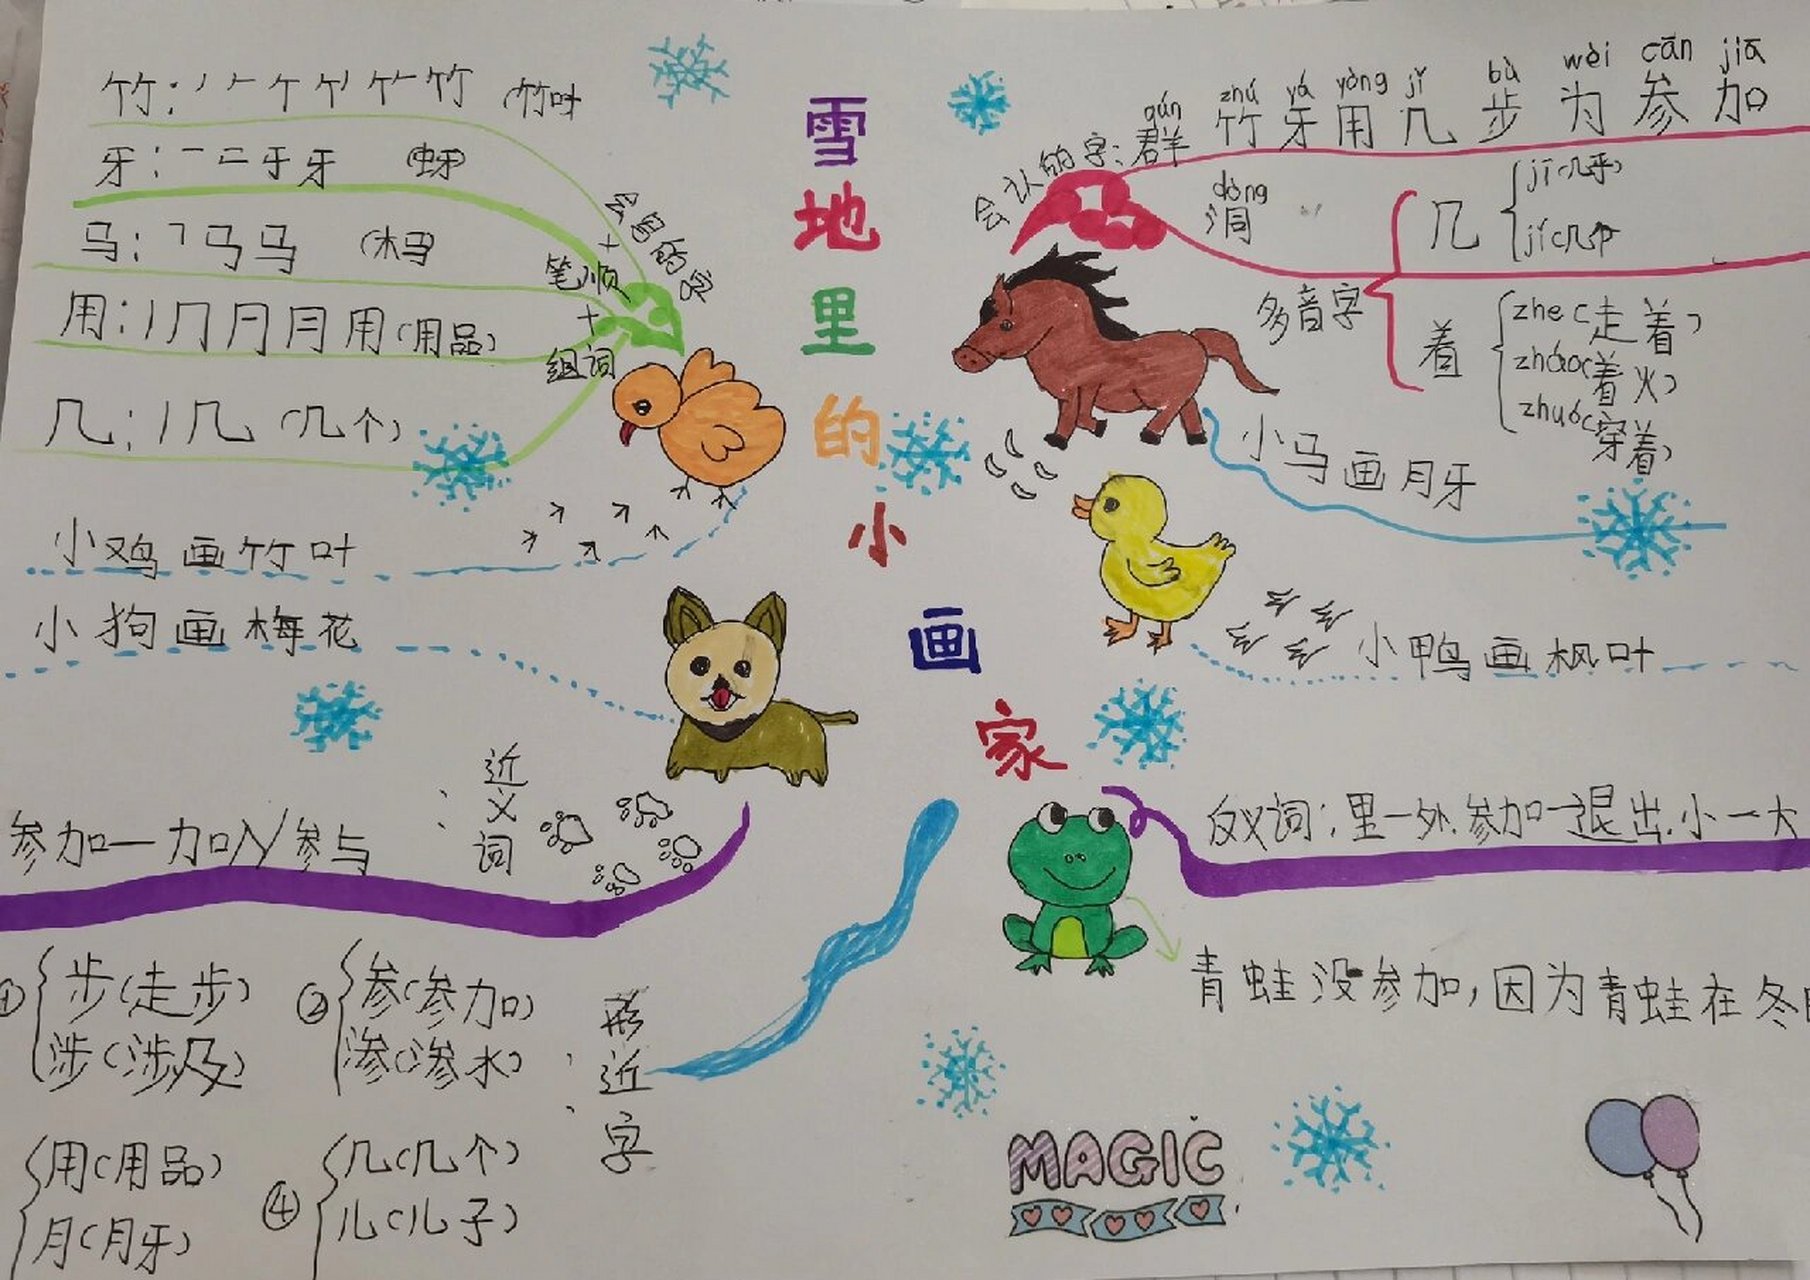 雪地里的小画家
竹：丿 𠂉 ケ 竹 (竹叶
牙：一 二 于 牙 (蚜)
马：㇕ 马 马
用：丿 冂 月 月 用 (用品)
几：丿 几 (几个)
会写的字
+
笔顺
+
组词
小鸡画竹叶
小狗画梅花
近义词：
参加—加入/参与
形近字：
① 步(走步)
涉(涉及)
② 参(参加)
渗(渗水)
用(用品)
月(月牙)
④ 几(几个)
儿(儿子)
qún zhú yá yòng jǐ bù wèi cān jiā
会认的字：群 竹 牙 用 几 步 为 参 加
dòng
洞
多音字
几 jī(几乎)
jǐ(几个
着 zhe(走着)
zháo(着火)
zhuó(穿着)
小马画月牙
小鸭画枫叶
反义词：里—外.参加—退出.小—大
青蛙没参加,因为青蛙在冬
MAGIC